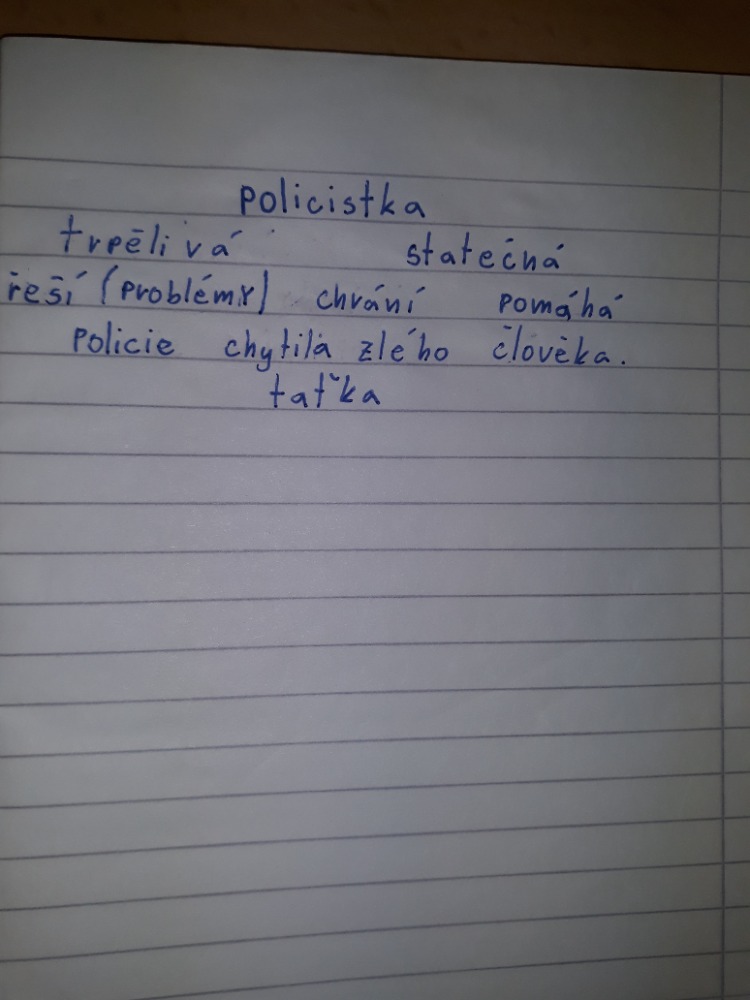 policistka
trpělivá statečná
řeší (problémy) chrání pomáhá
policie chytila zlého člověka.
taťka